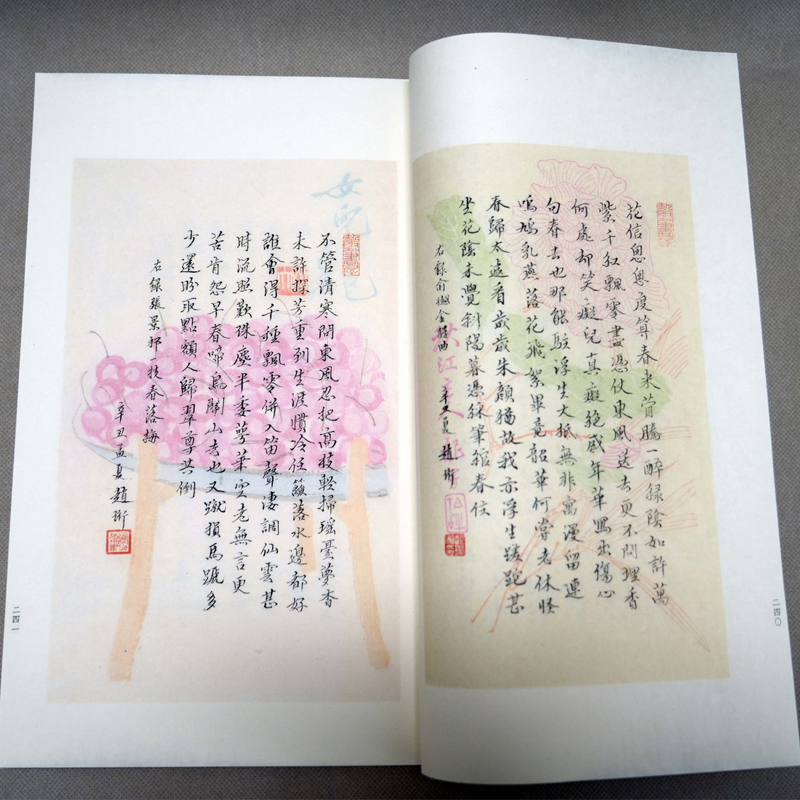 花信恖恖度算春來瞢騰一醉綠陰如許萬
紫千紅飄零盡憑仗東風送去更不問埋香
何處却笑癡兒真癡絕感年華寫出傷心
句春去也那能駐浮生大抵無非寓漫留連
鳴鳩乳燕落花飛絮畢竟韶華何嘗老休怪
春歸太遽看歲歲朱顏猶故我亦浮生蹉跎甚
坐花陰未覺斜陽暮憑綵筆綰春住
右錄俞樾金縷曲
辛丑夏趙珩
二四〇
女兒
不管清寒問東風忍把高枝輕掃瑶臺夢杳
未許探芳重到生涯慣冷任籬落水邊都好
誰會得千種飄零併入笛聲淒調仙雲甚
時流照歎珠塵半委萼華空老無言更
苦肯怨早春啼鳥關山去也又蹴損馬蹄多
少還盼取點額人歸翠尊共倒
右錄張景祁一枝春落梅
辛丑孟夏趙珩
二四一